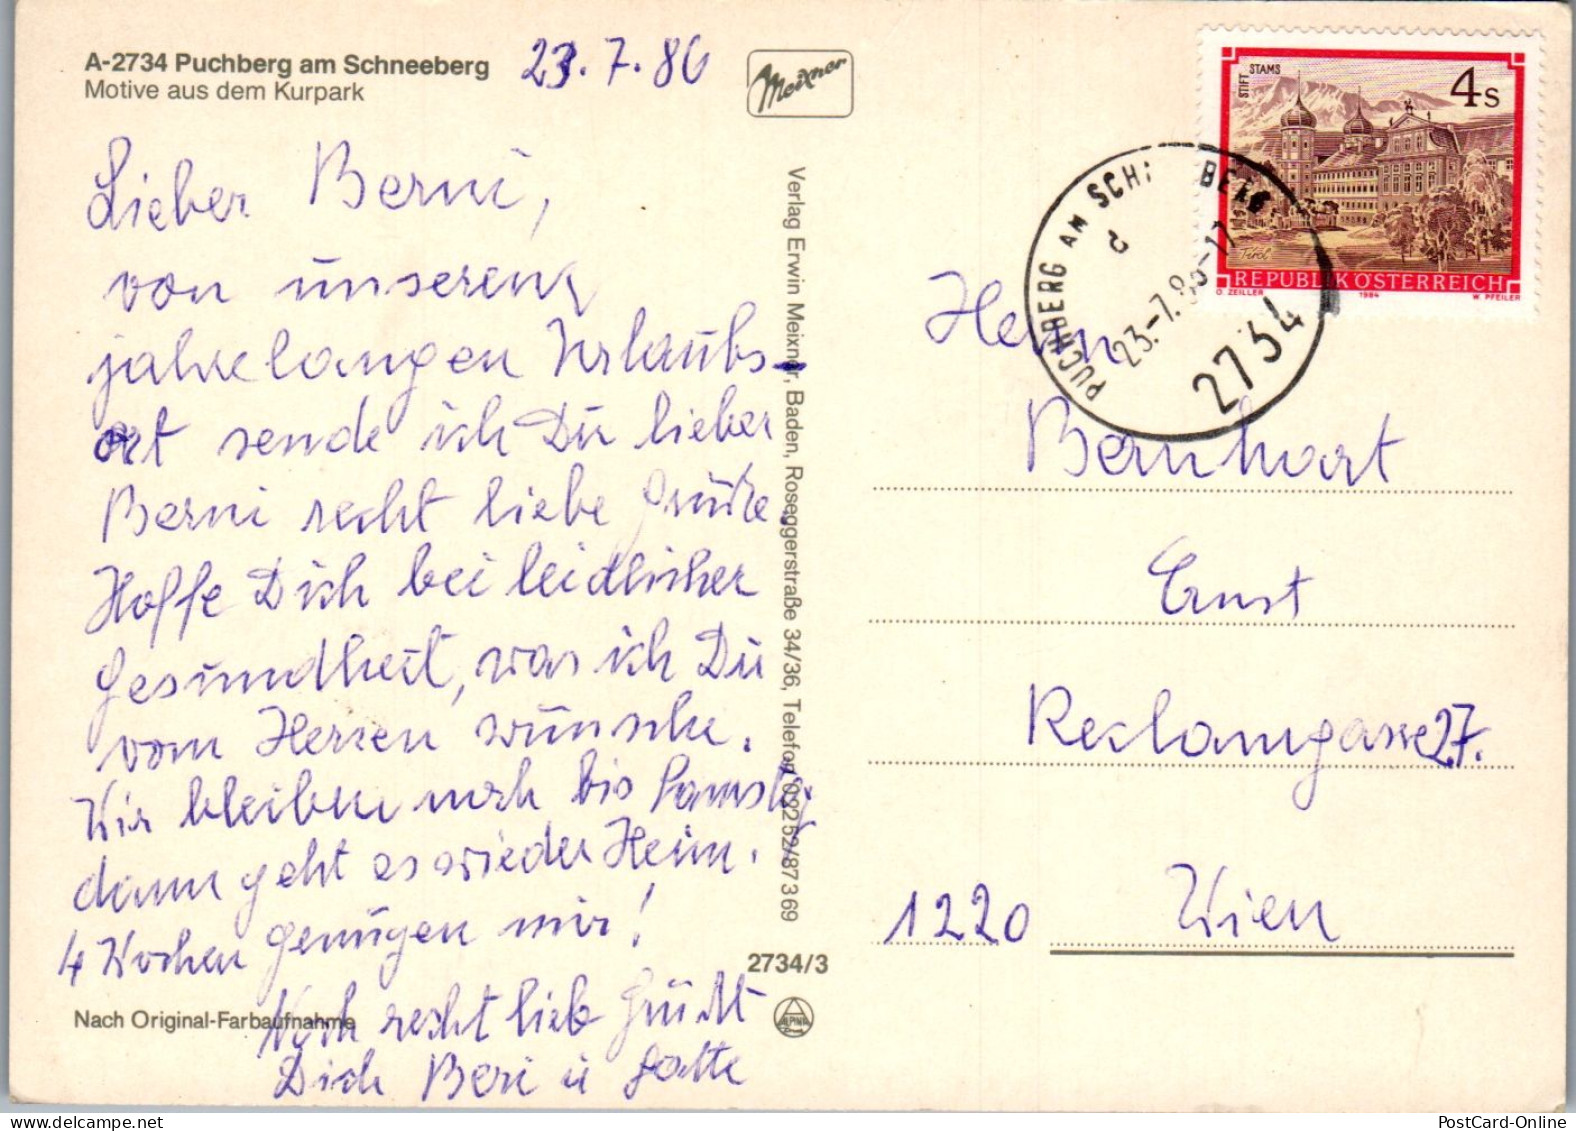 A-2734 Puchberg am Schneeberg
Motive aus dem Kurpark
23.7.86
Meixner
Lieber Berni,
von unseren
jahrelangen Urlaubs-
ort sende ich Dir lieber
Berni recht liebe Grüße.
Hoffe Dich bei leidlicher
Gesundheit, was ich Dir
vom Herzen wünsche.
Wir bleiben noch bis Samstag
dann geht es wieder Heim.
4 Wochen genügen mir!
Noch recht lieb Grüßt
Dich Beri u Gatte
Nach Original-Farbaufnahme
Verlag Erwin Meixner, Baden, Roseggerstraße 34/36, Telefon 02252/87369
2734/3
ALPINA
STIFT STAMS
4s
Tirol
REPUBLIK ÖSTERREICH
O. ZEILLER 1984 W. PFEILER
PUCHBERG AM SCH BERG
d
23.-7.86-17
2734
Herrn
Bernhart
Ernst
Reclamgasse 27.
1220 Wien
PostCard-Online
www.delcampe.net